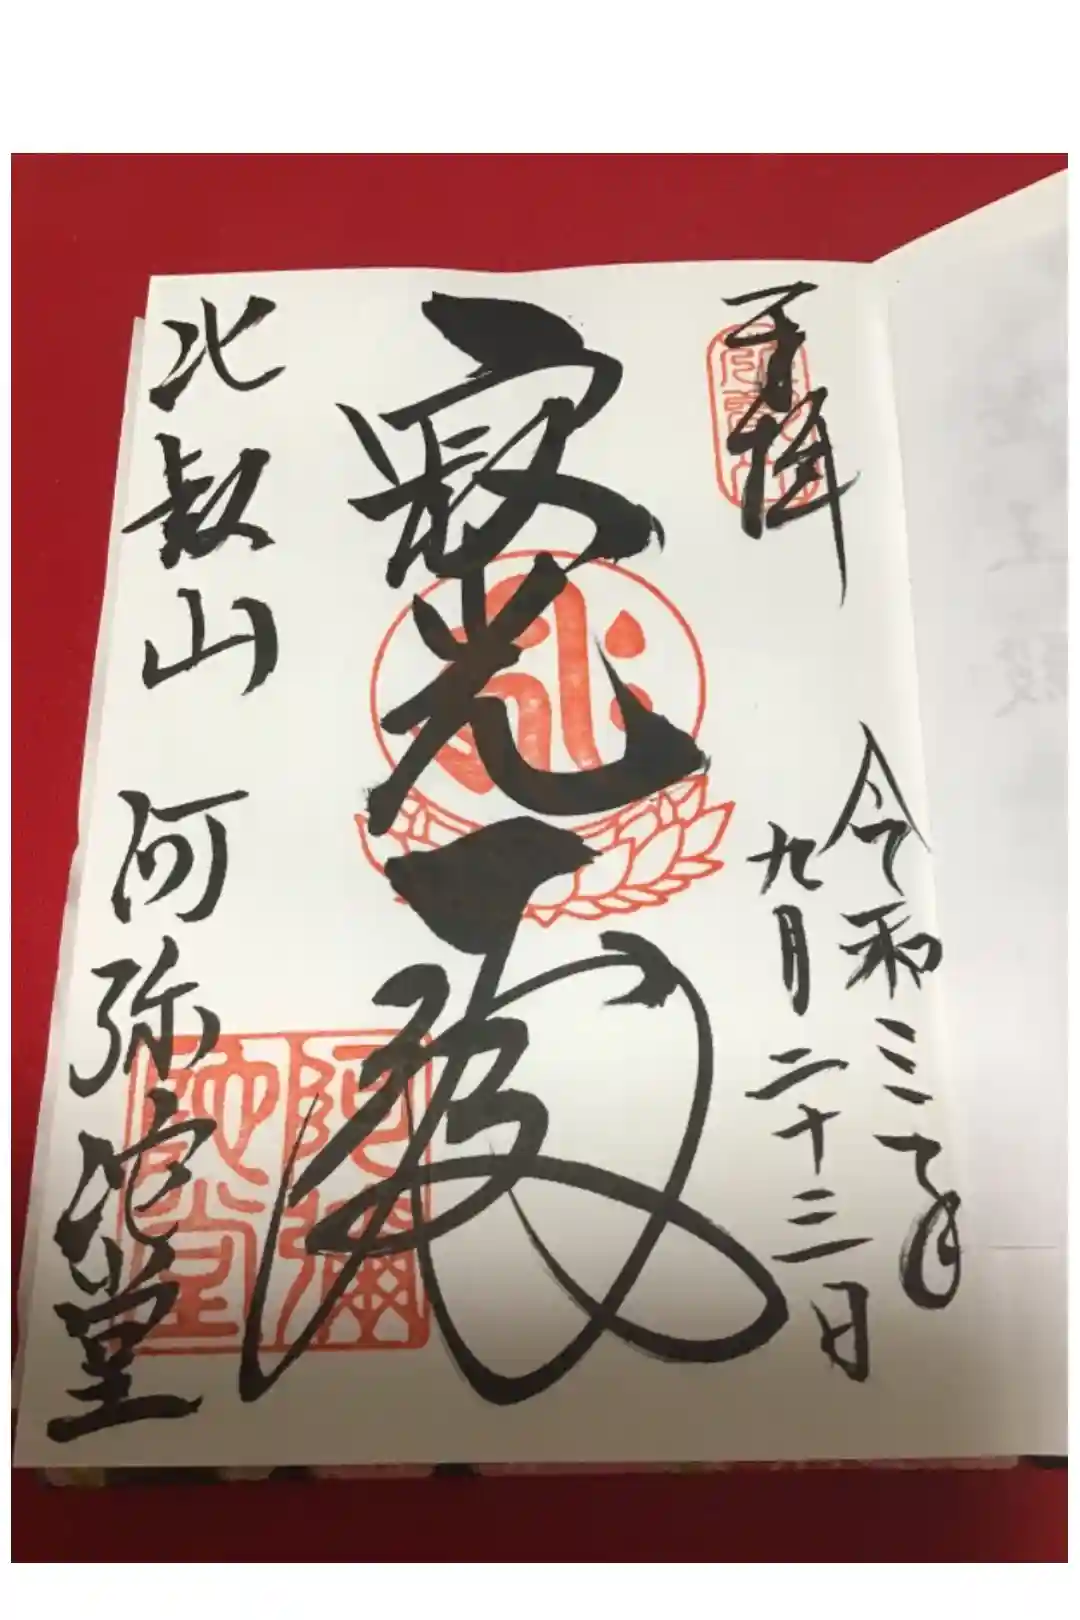 奉拝
令和三年
九月二十三日
寂光
比叡山 阿弥陀堂
阿彌陀堂